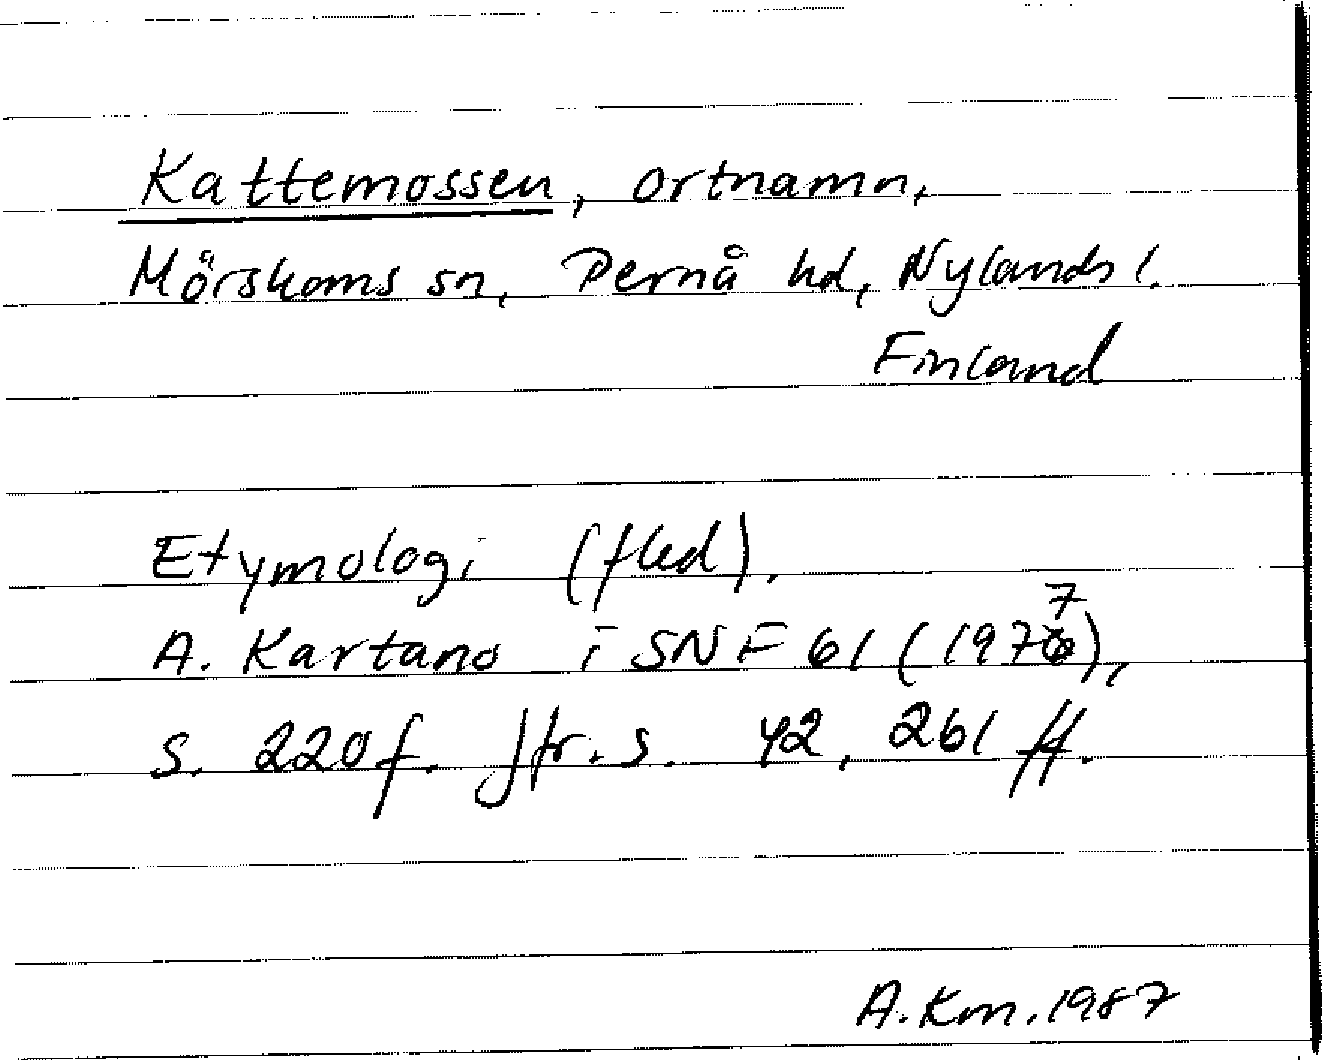 Kattemossen, ortnamn,
Mörskoms sn, Pernå hd, Nylands l.
Finland
Etymologi (fled).
A. Kartano i SNF 61 (1977),
s. 220f. Jfr. s. 42, 261 ff.
A. Km. 1987